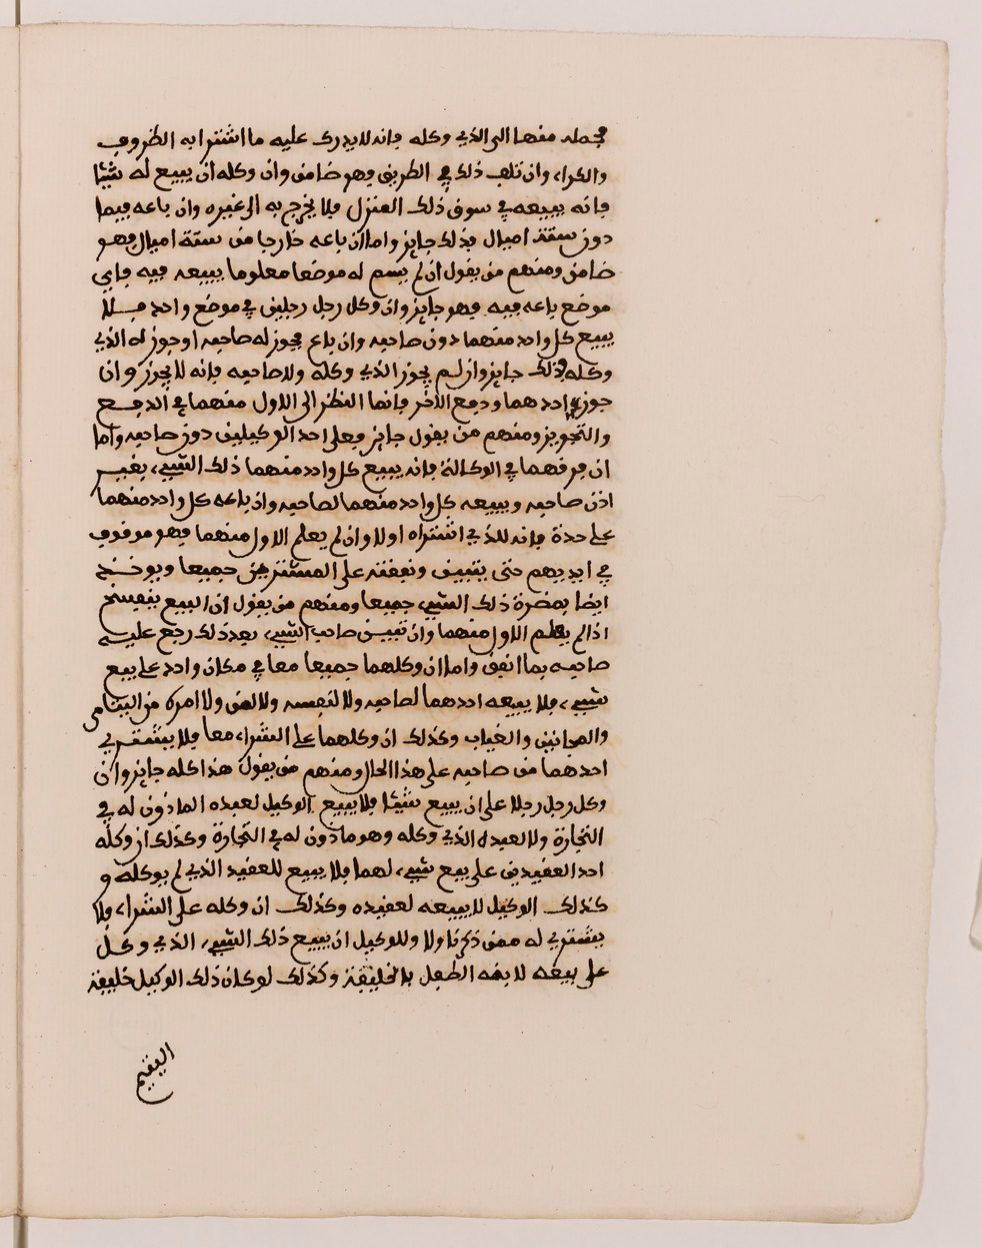 فحمله منها الى الذي وكله فانه لا يدرك عليه ما اشترا به الظروف
والكراء وان تلف ذلك في الطريق فهو ضامن وان وكله ان يبيع له شيئا
فانه يبيعه في سوق ذلك المنزل فلا يخرج به الى غيره وان باعه فيما
دون ستة اميال فذلك جايز واما ان باعه خارجا من ستة اميال فهو
ضامن ومنهم من يقول ان لم يسم له موضعا معلوما يبيعه فيه فاي
موضع باعه فيه فهو جايز وان وكل رجل رجلين في موضع واحد فلا
يبيع كل واحد منهما دون صاحبه وان باع فجوز له صاحبه او جوز له الذي
وكله فذلك جايز وان لم يجوز الذي وكله ولا صاحبه فانه لا يجوز وان
جوز احدهما ودفع الآخر فانما النظر الى الاول منهما في الدفع
والتجويز ومنهم من يقول جايز فعل احد الوكيلين دون صاحبه واما
ان فرقهما في الوكالة فانه يبيع كل واحد منهما ذلك الشيء بغير
اذن صاحبه ويبيعه كل واحد منهما لصاحبه وان باعه كل واحد منهما
على حدة فانه للذي اشتراه اولا وان لم يعلم الاول منهما فهو موقوف
في ايديهم حتى يتبين ونفقته على المشتريين جميعا ويوخذ
ايضا بمضرة ذلك الشيء جميعا ومنهم من يقول ان البيع ينفسخ
اذا لم يعلم الاول منهما وان تبين صاحب الشيء بعد ذلك رجع عليه
صاحبه بما انفق واما ان وكلهما جميعا معا في مكان واحد على بيع
شيء فلا يبيعه احدهما لصاحبه ولا لنفسه ولا لمن ولا امره من اليتامى
والمجانين والغياب وكذلك ان وكلهما على الشراء معا فلا يشتري
احدهما من صاحبه على هذا الحال ومنهم من يقول هذا كله جايز وان
وكل رجل رجلا على ان يبيع شيئا فلا يبيع الوكيل لعبده الماذون له في
التجارة ولا لعبد الذي وكله وهو ماذون له في التجارة وكذلك ان وكله
احد العقيدين على بيع شيء لهما فلا يبيع للعقيد الذي لم يوكله و
كذلك الوكيل لا يبيعه لعقيده وكذلك ان وكله على الشراء فلا
يشتري له ممن ذكرنا ولا وللوكيل ان يبيع ذلك الشيء الذي وكل
على بيعه لابنه الطفل بالخليفة وكذلك لو كان ذلك الوكيل خليفة
اليتيم